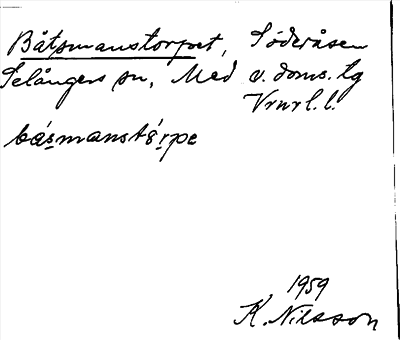 Båtsmanstorpet, Söderåsen
Selångers sn, Med v. doms. tg
Vrnr l. l.
båsmanstårpe
1959
K. Nilsson